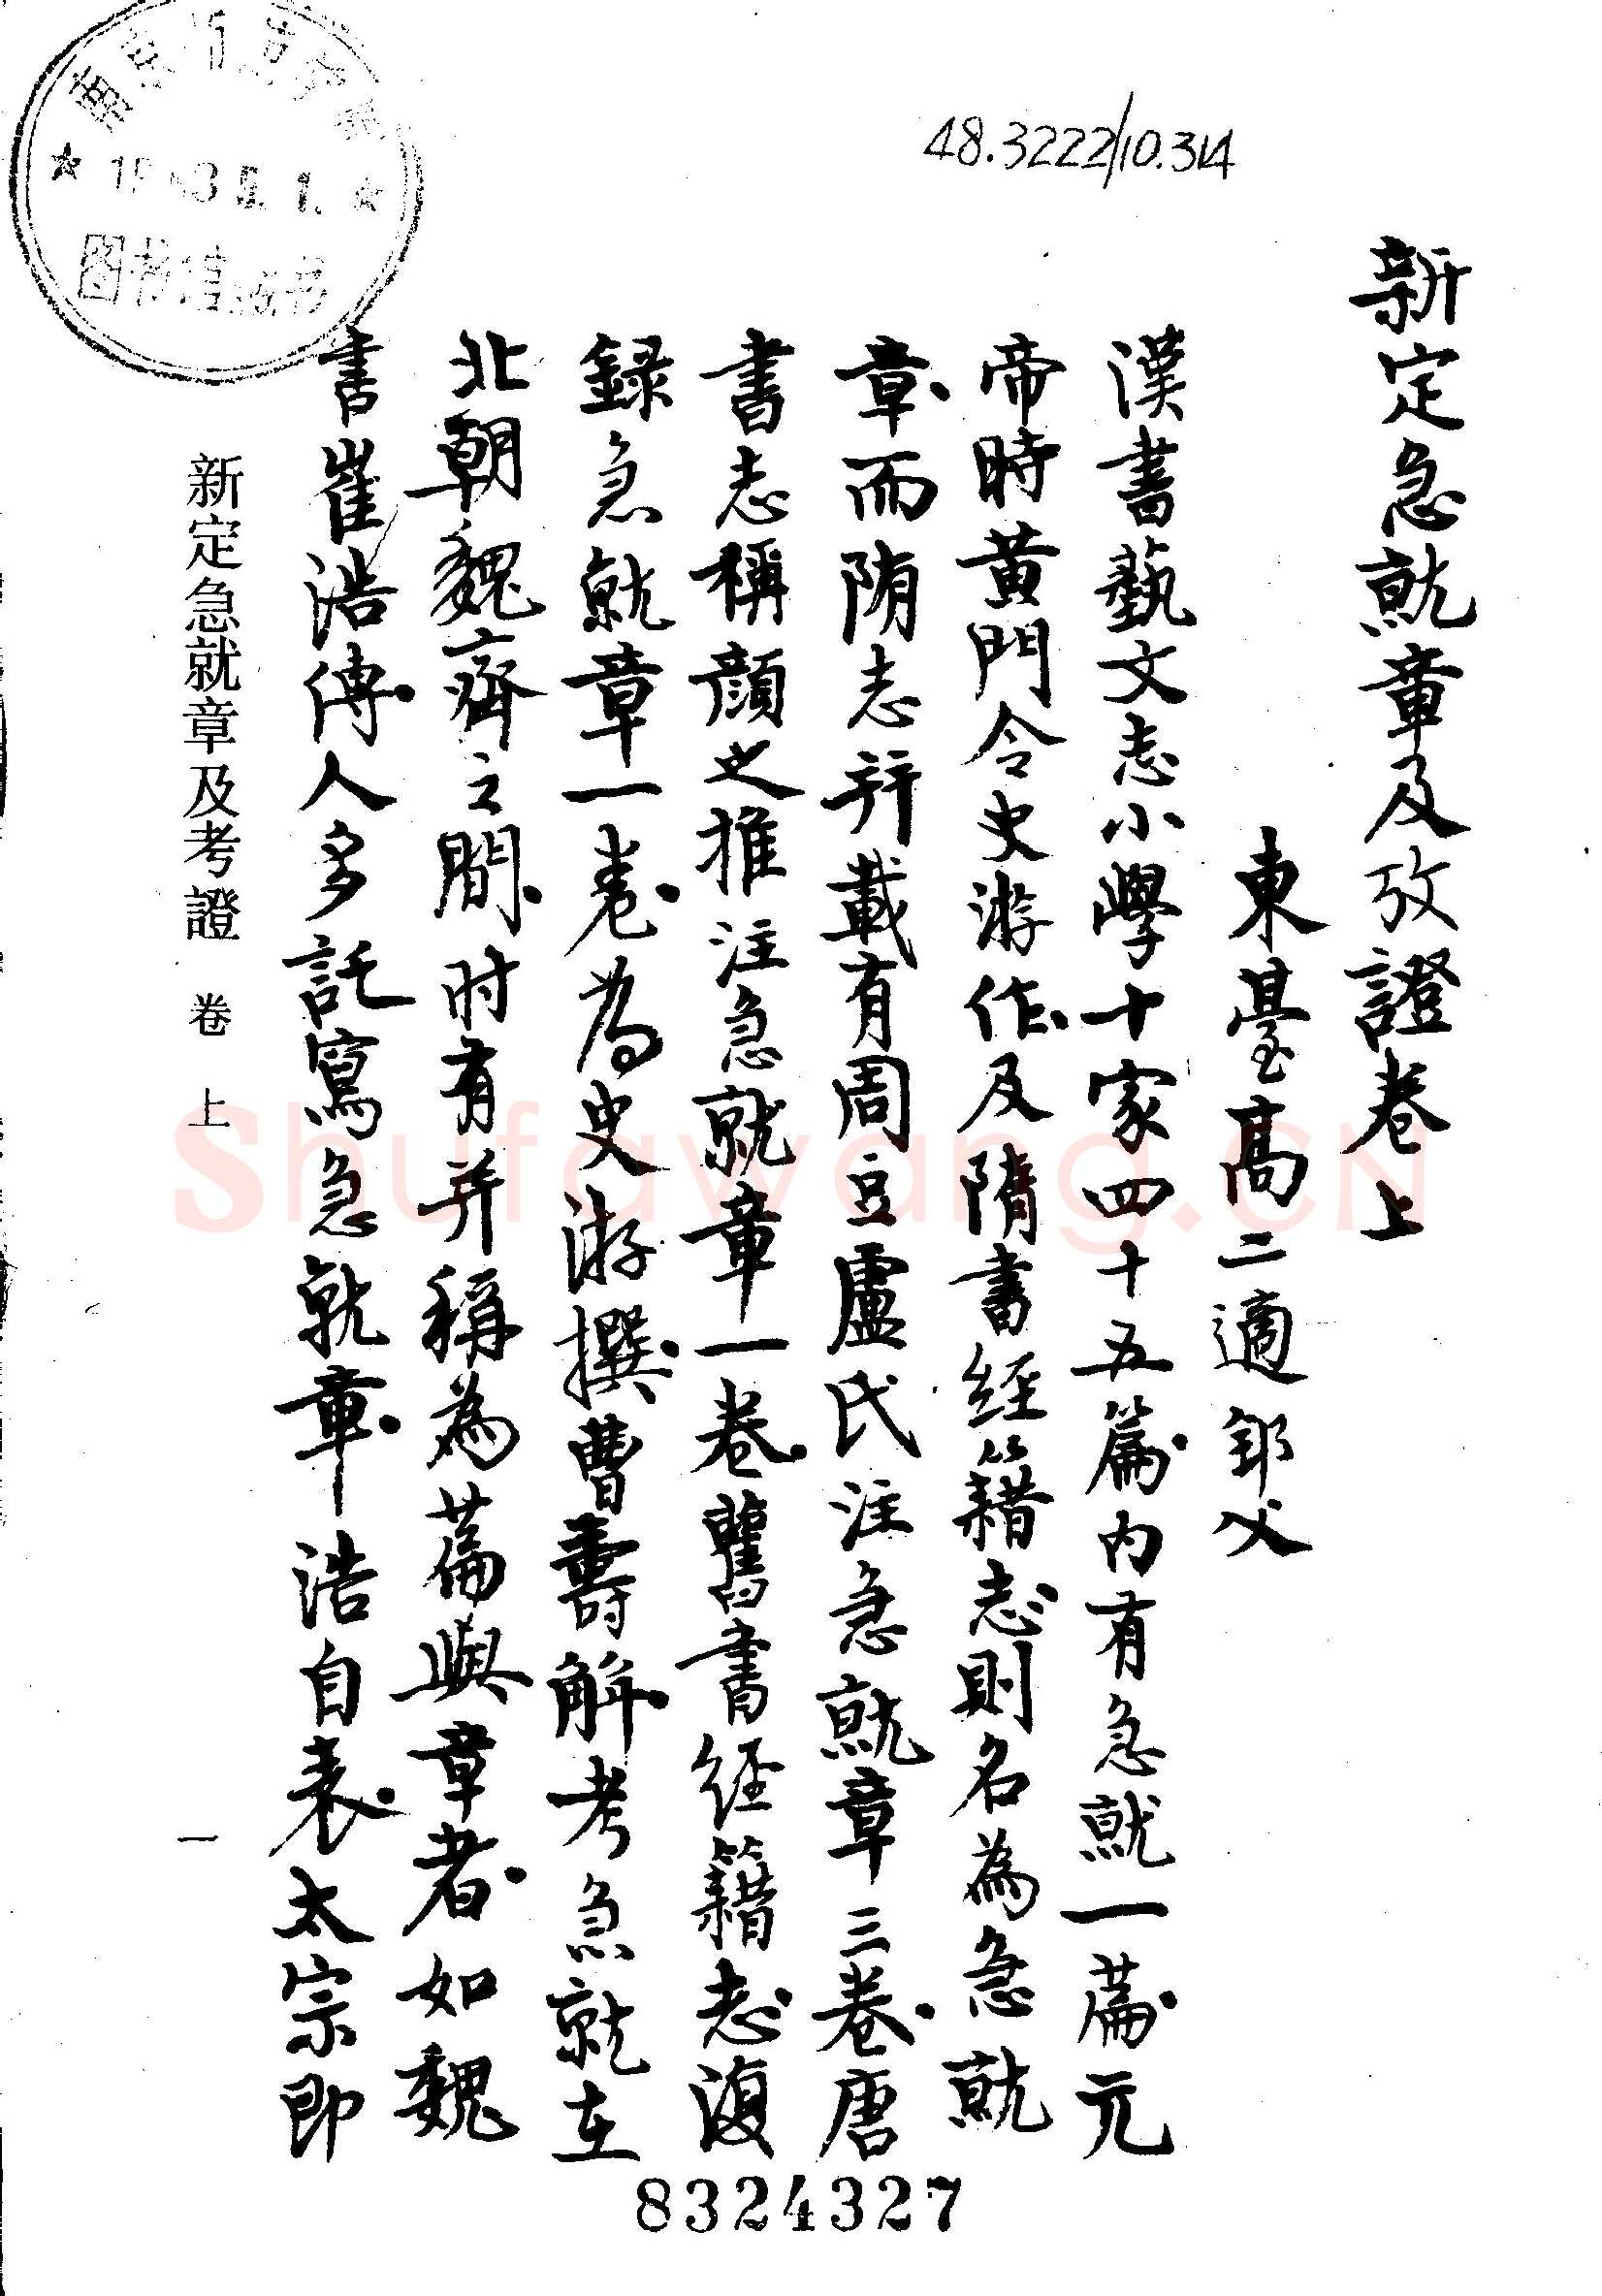 48.3222/10.314
新定急就章及攷證卷上
東臺高二適
漢書藝文志小學十家四十五篇内有急就一篇元
帝時黃門令史游作及隋書経籍志則名為急就
章而隋志并載有周豆盧氏注急就章三卷唐
書志稱顏之推注急就章一卷舊書経籍志復
録急就章一卷為史游撰曹壽解考急就在
北朝魏齊之間时有并稱為篇與章者如魏
書崔浩傳人多託寫急就章浩自表太宗即
新定急就章及考證 卷 上
一
图书馆藏书
8324327
Shufawang.CN